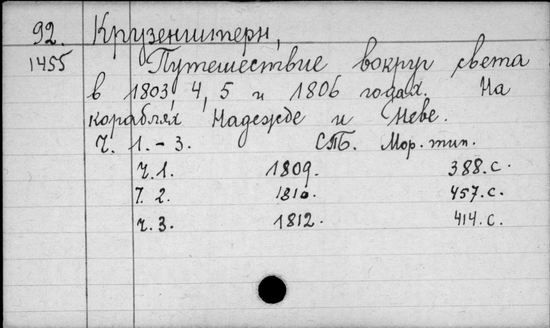 92. Крузенштерн,
1455 Путешествие вокруг света
в 1803, 4, 5 и 1806 годах. На
кораблях Надежде и Неве.
Ч. 1.-3. СПБ. Мор. тип.
Ч. 1. 1809. 388. с.
Ч. 2. 1810. 457. с.
Ч. 3. 1812. 414. с.